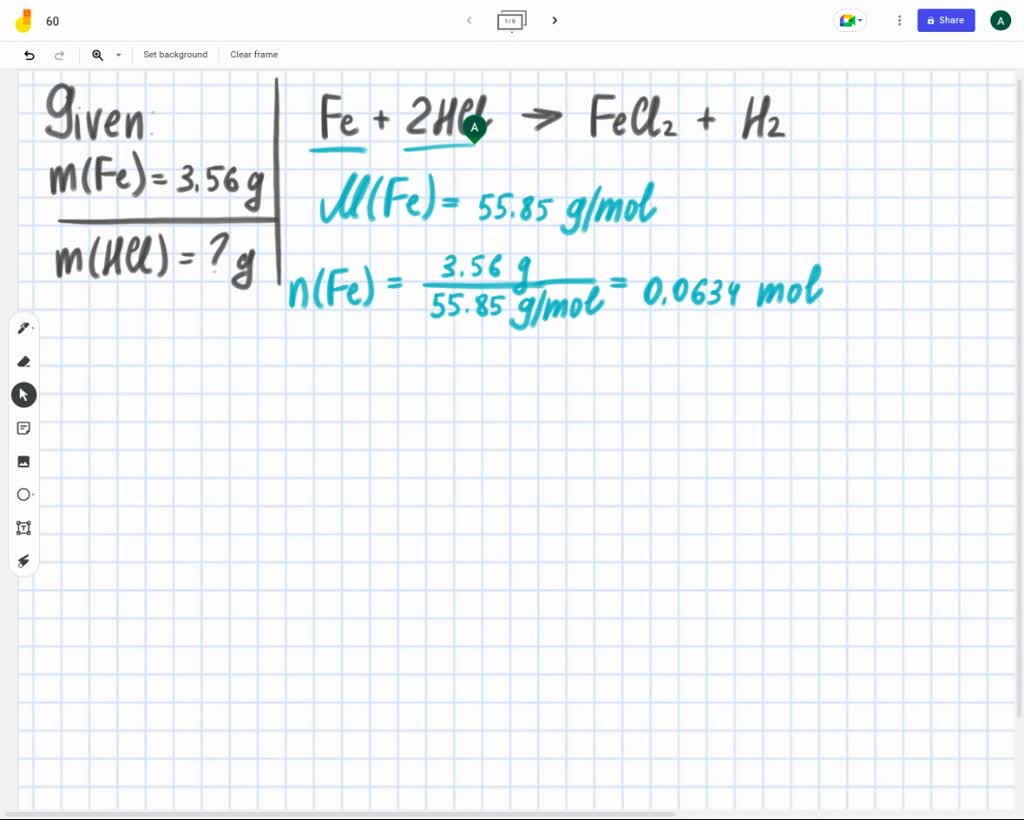 60
1/6
Share
A
Set background
Clear frame
Given:
m(Fe) = 3.56 g
m(HCl) = ? g
Fe + 2HCl → FeCl₂ + H₂
A
M(Fe) = 55.85 g/mol
n(Fe) = 3.56 g / 55.85 g/mol = 0.0634 mol